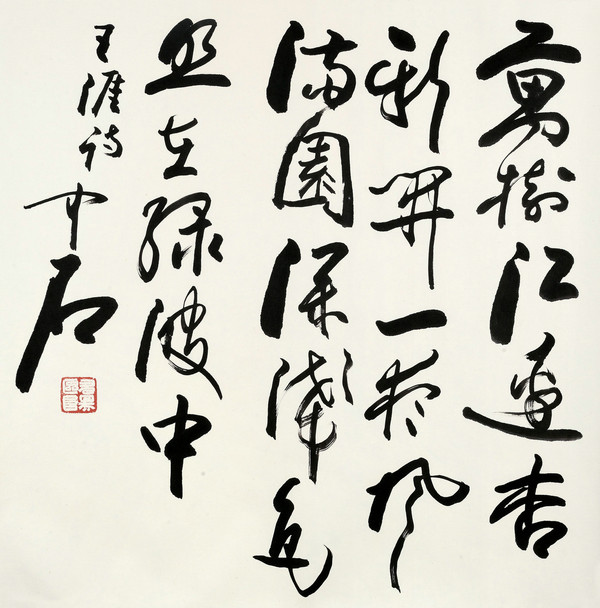 萬樹江邊杏
新開一夜風
滿園深淺色
照在綠波中
王涯詩中石